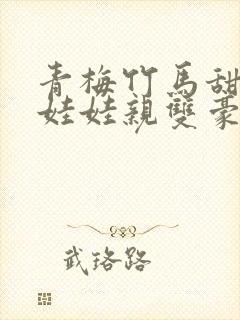 青梅竹馬甜
娃娃親雙豪
武珞路